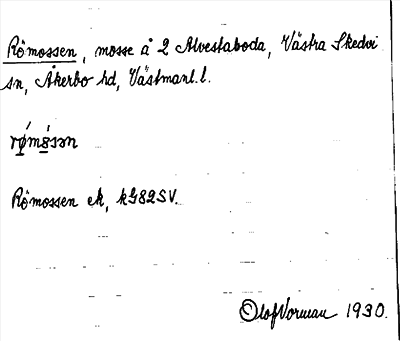 Römossen, mosse å 2 Alvestaboda, Västra Skedvi
sn, Åkerbo hd, Västmanl. l.
Römossen ek, kG82SV.
Olof Norman 1930.